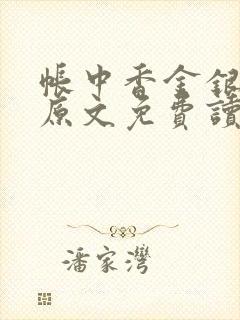 帳中香金銀
原文免費讀
潘家灣